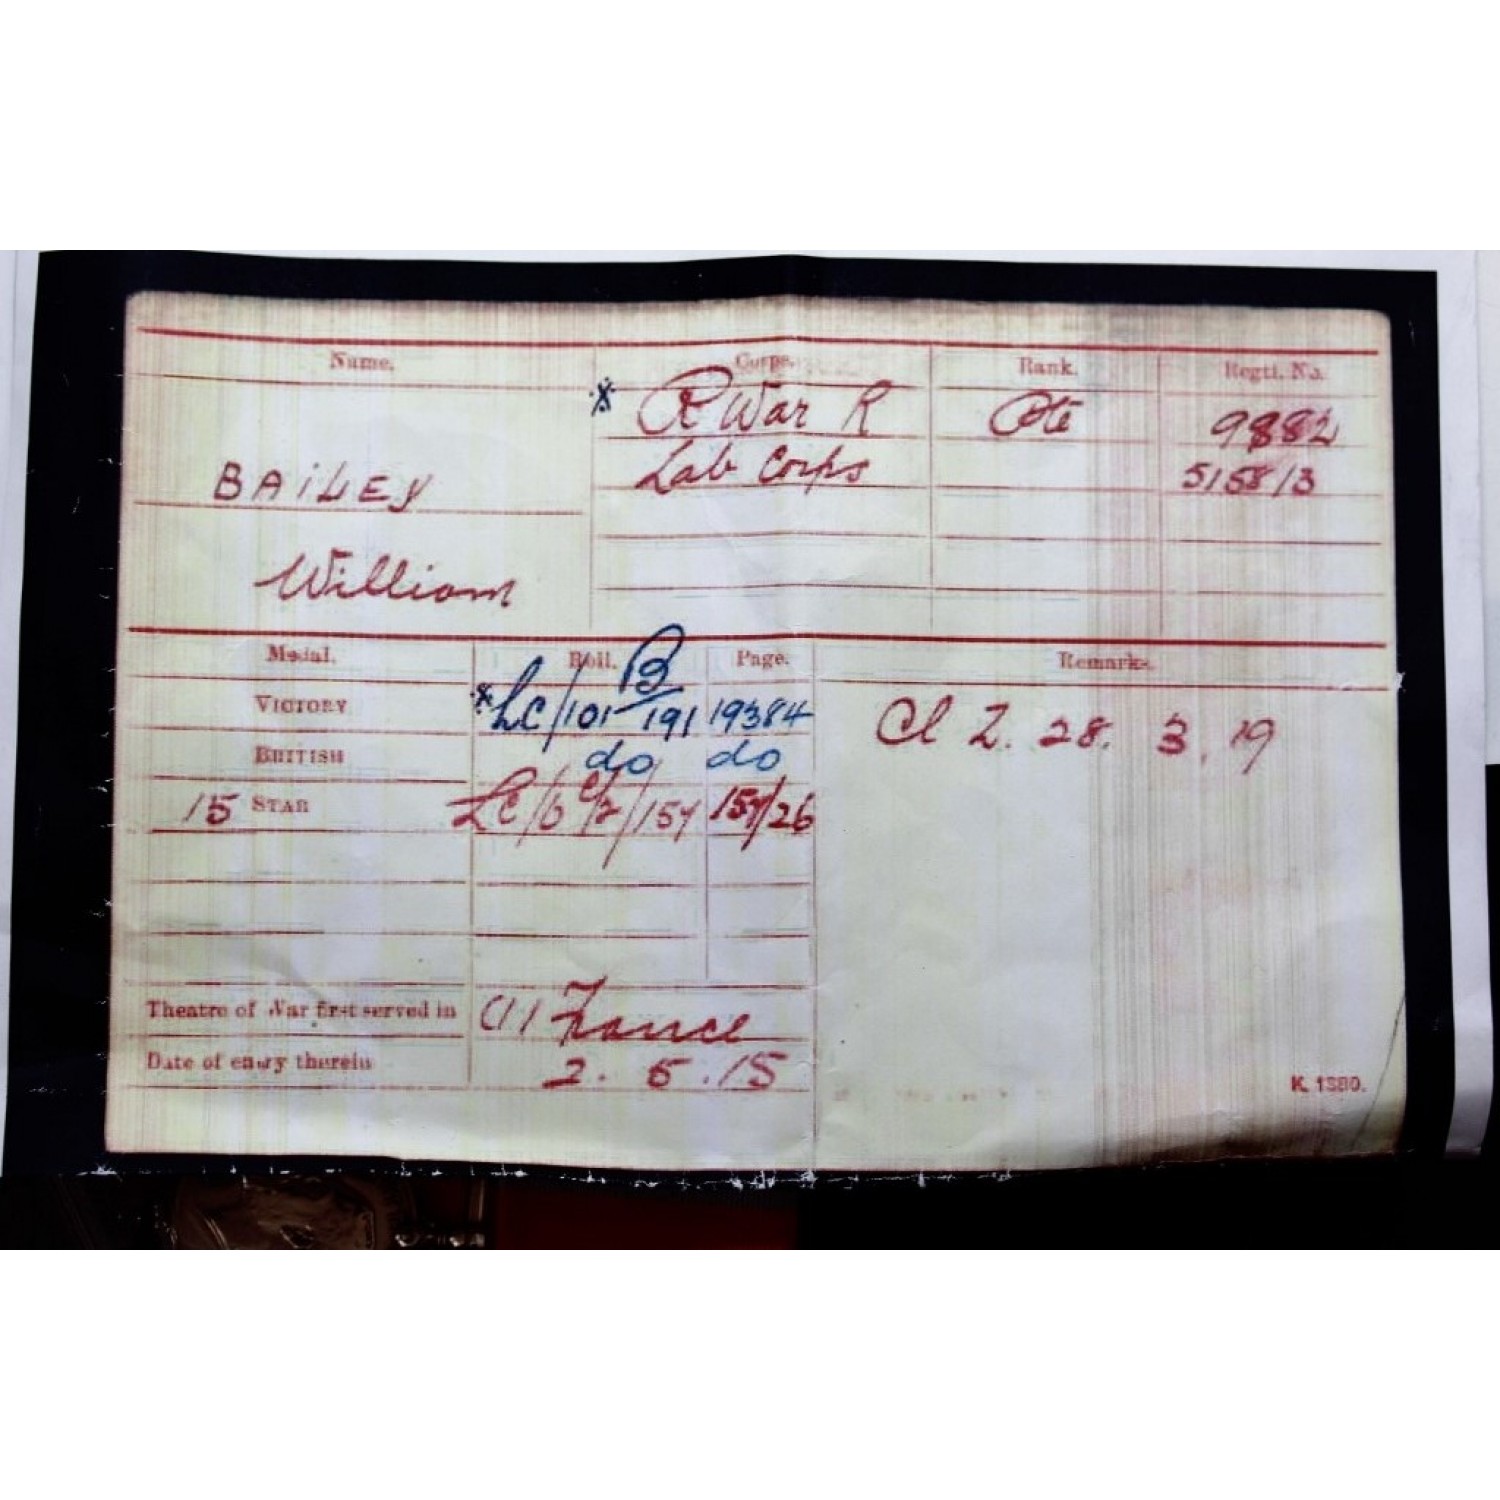 Name. Corps. Rank. Regtl. No.
* R War R Pte 9882
Lab Corps 515813
BAILEY
William
Medal. Roll. Page. Remarks.
VICTORY * LC/101 B 191 19384 Cl Z. 28. 3. 19
BRITISH do do
15 STAR LC/6 c/2/157 157/26
Theatre of War first served in (1) France
Date of entry therein 2. 5. 15
K. 1380.